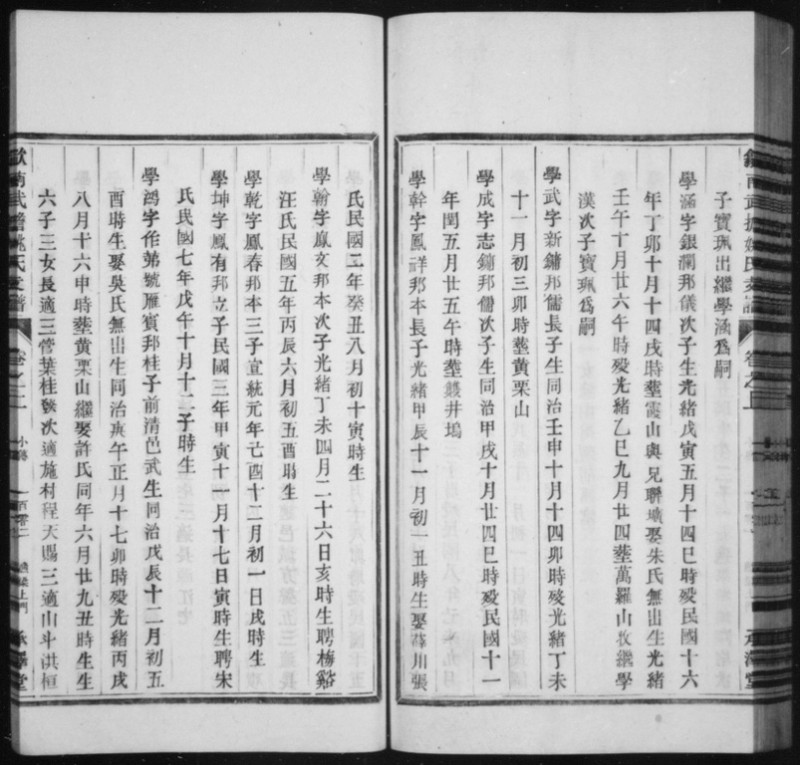 子寶珮出繼學涵爲嗣
學涵字銀瀾邦儀次子生光緒戊寅五月十四巳時歿民國十六
年丁卯十月十四戌時塟霞山與兄聯壙娶朱氏無出生光緒
壬午十月廿六午時歿光緒乙巳九月廿四塟萬羅山收繼學
漢次子寶珮爲嗣
學武字新鏞邦儒長子生同治壬申十月十四卯時歿光緒丁未
十一月初三卯時塟黄栗山
學成字志鏞邦儒次子生同治甲戌十月廿四巳時歿民國十一
年閏五月廿五午時塟雙井塢
學幹字鳳祥邦本長子光緒甲辰十一月初一丑時生娶薛川張
氏民國二年癸丑八月初十寅時生
學翰字鳳文邦本次子光緒丁未四月二十六日亥時生聘梅谿
汪氏民國五年丙辰六月初五酉時生
學乾字鳳春邦本三子宣統元年己酉十二月初一日戌時生
學坤字鳳有邦立子民國三年甲寅十一月十七日寅時生聘宋
氏民國七年戊午十月十二子時生
學鴻字作苐號雁賓邦桂子前清邑武生同治戊辰十二月初五
酉時生娶吳氏無出生同治庚午正月十七卯時歿光緒丙戌
八月十六申時塟黄栗山繼娶許氏同年六月廿九丑時生生
六子三女長適三管葉桂 次適施村程天賜三適山斗洪桓
歙南武擔姚氏支譜
卷之二
小傳
一百零二
承澤堂